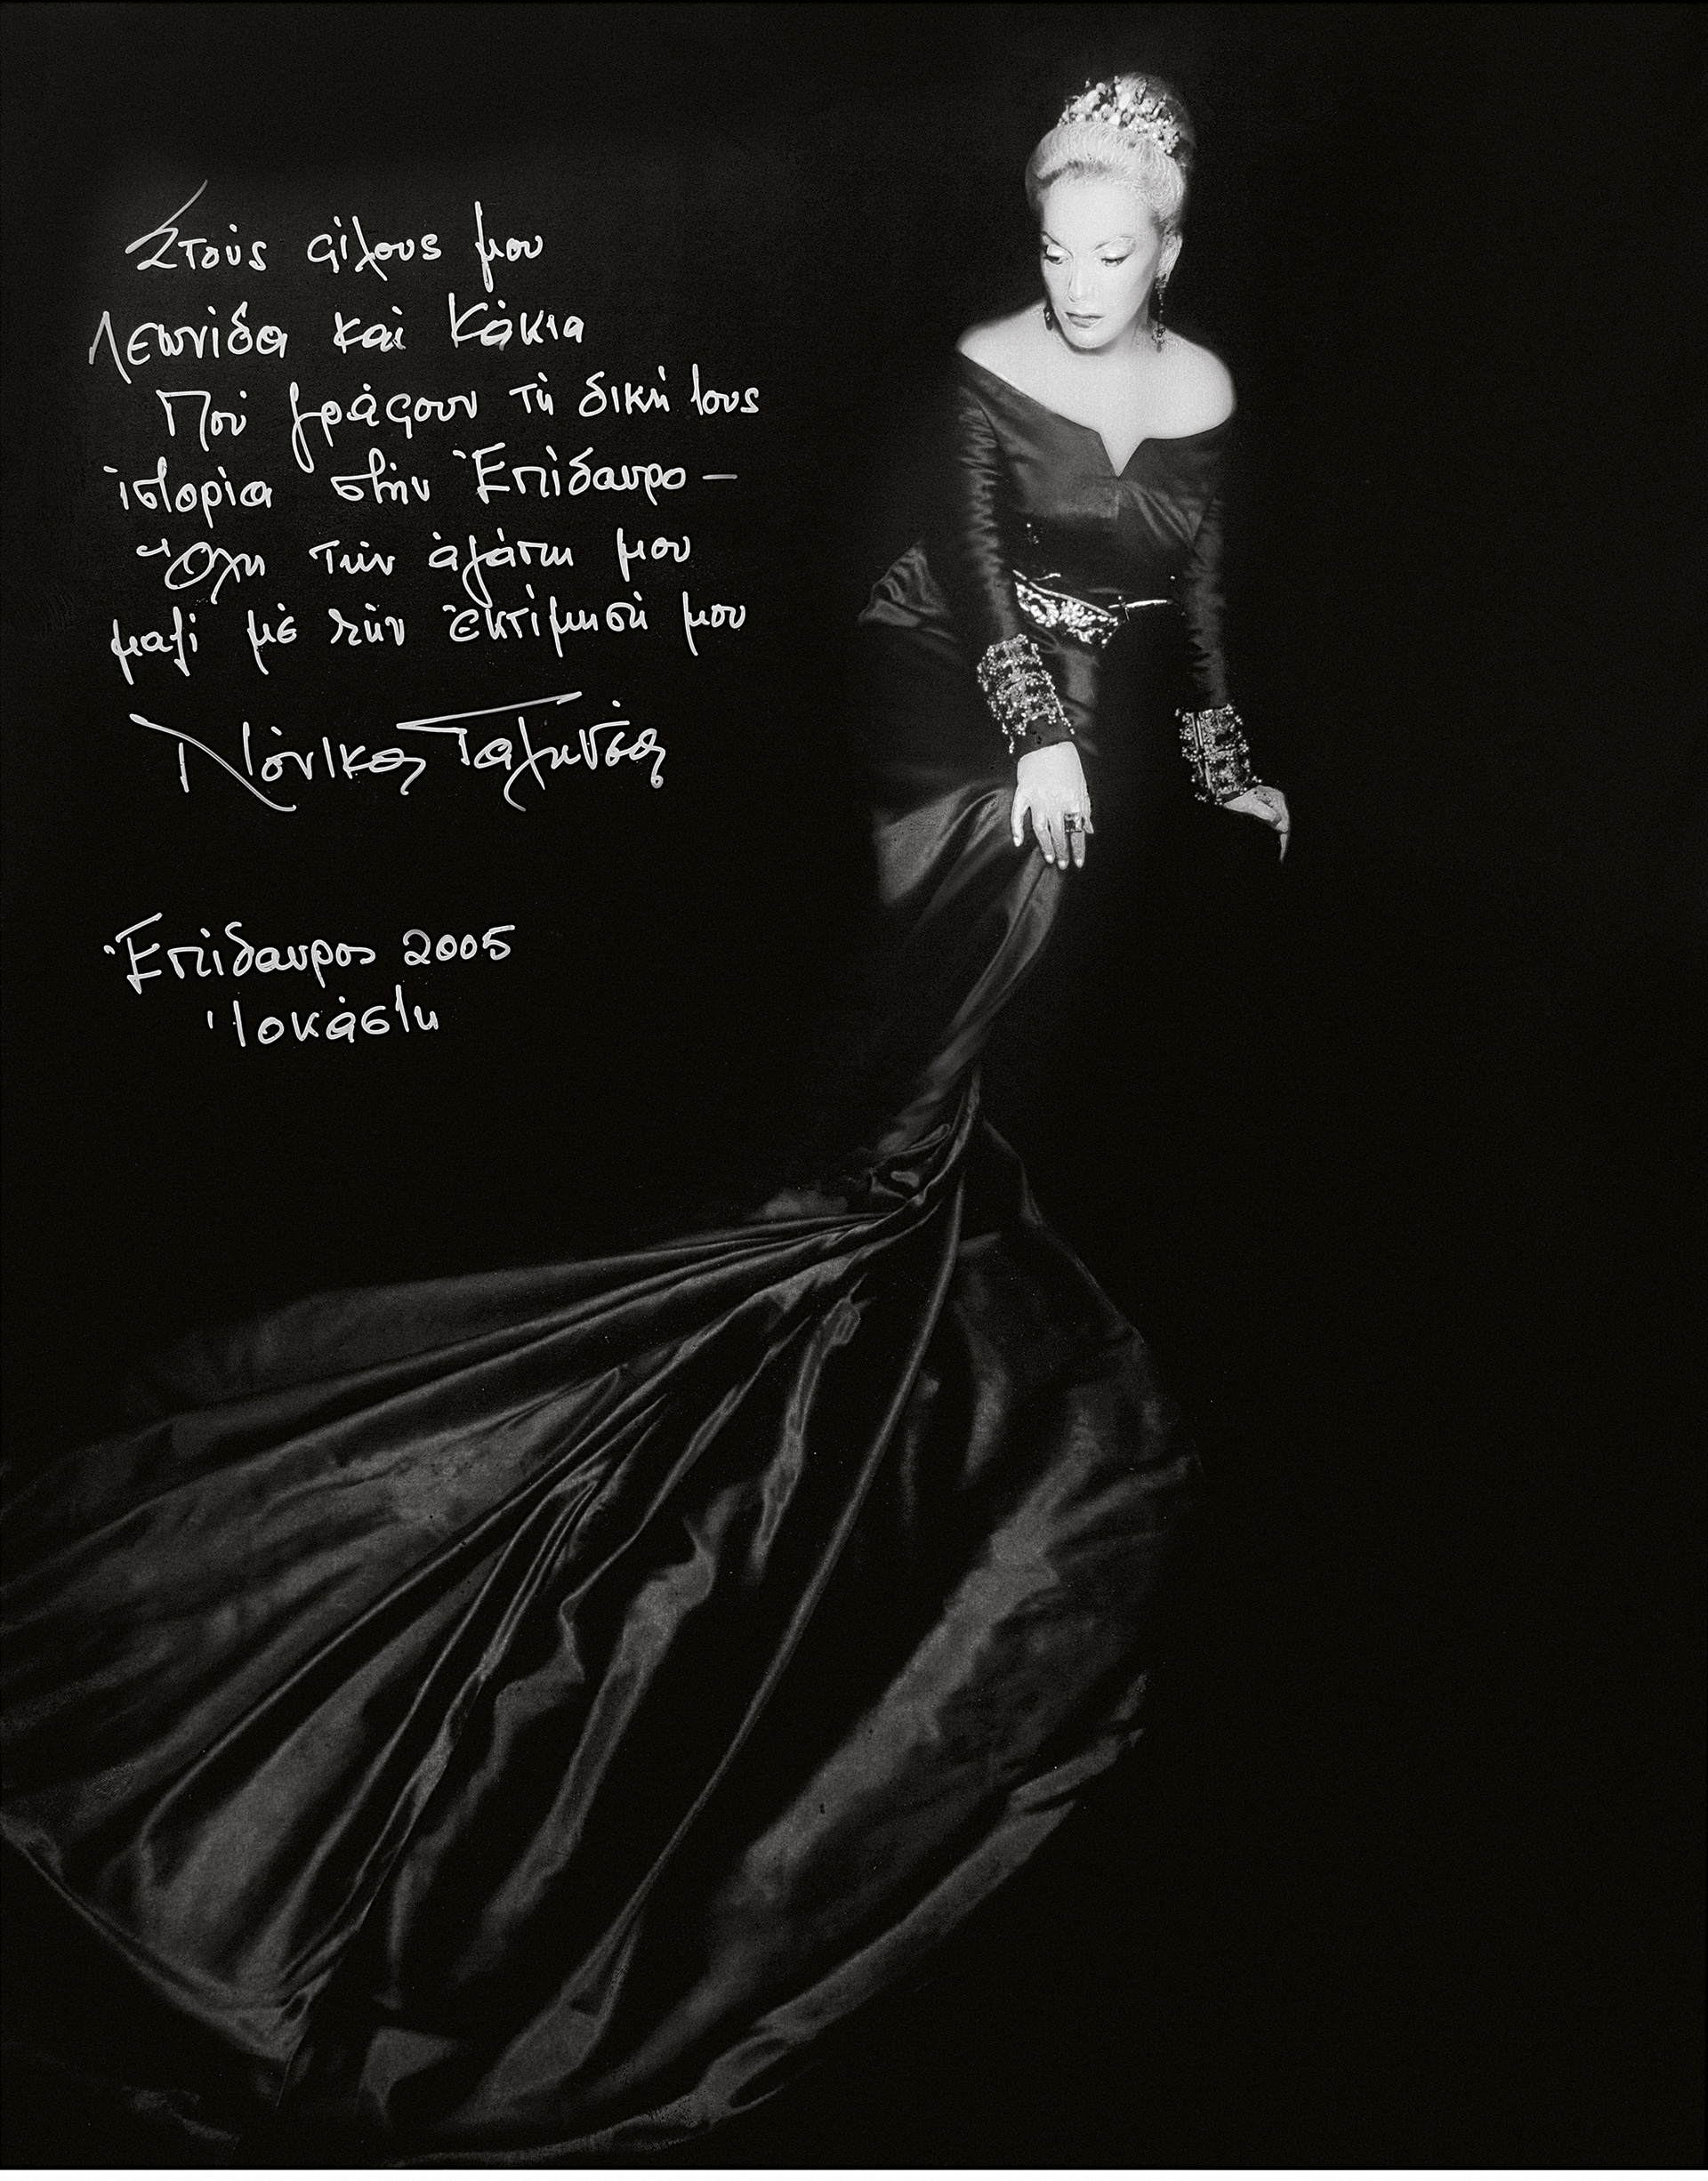 Στούς φίλους μου
Λεωνίδα καί Κάκια
Πού γράφουν τή δική τους
ἱστορία στήν Ἐπίδαυρο –
Ὅλη τήν ἀγάπη μου
μαζί μέ τήν ἐκτίμησή μου
Νόνικα Γαληνέα
Ἐπίδαυρος 2005
Ἰοκάστη